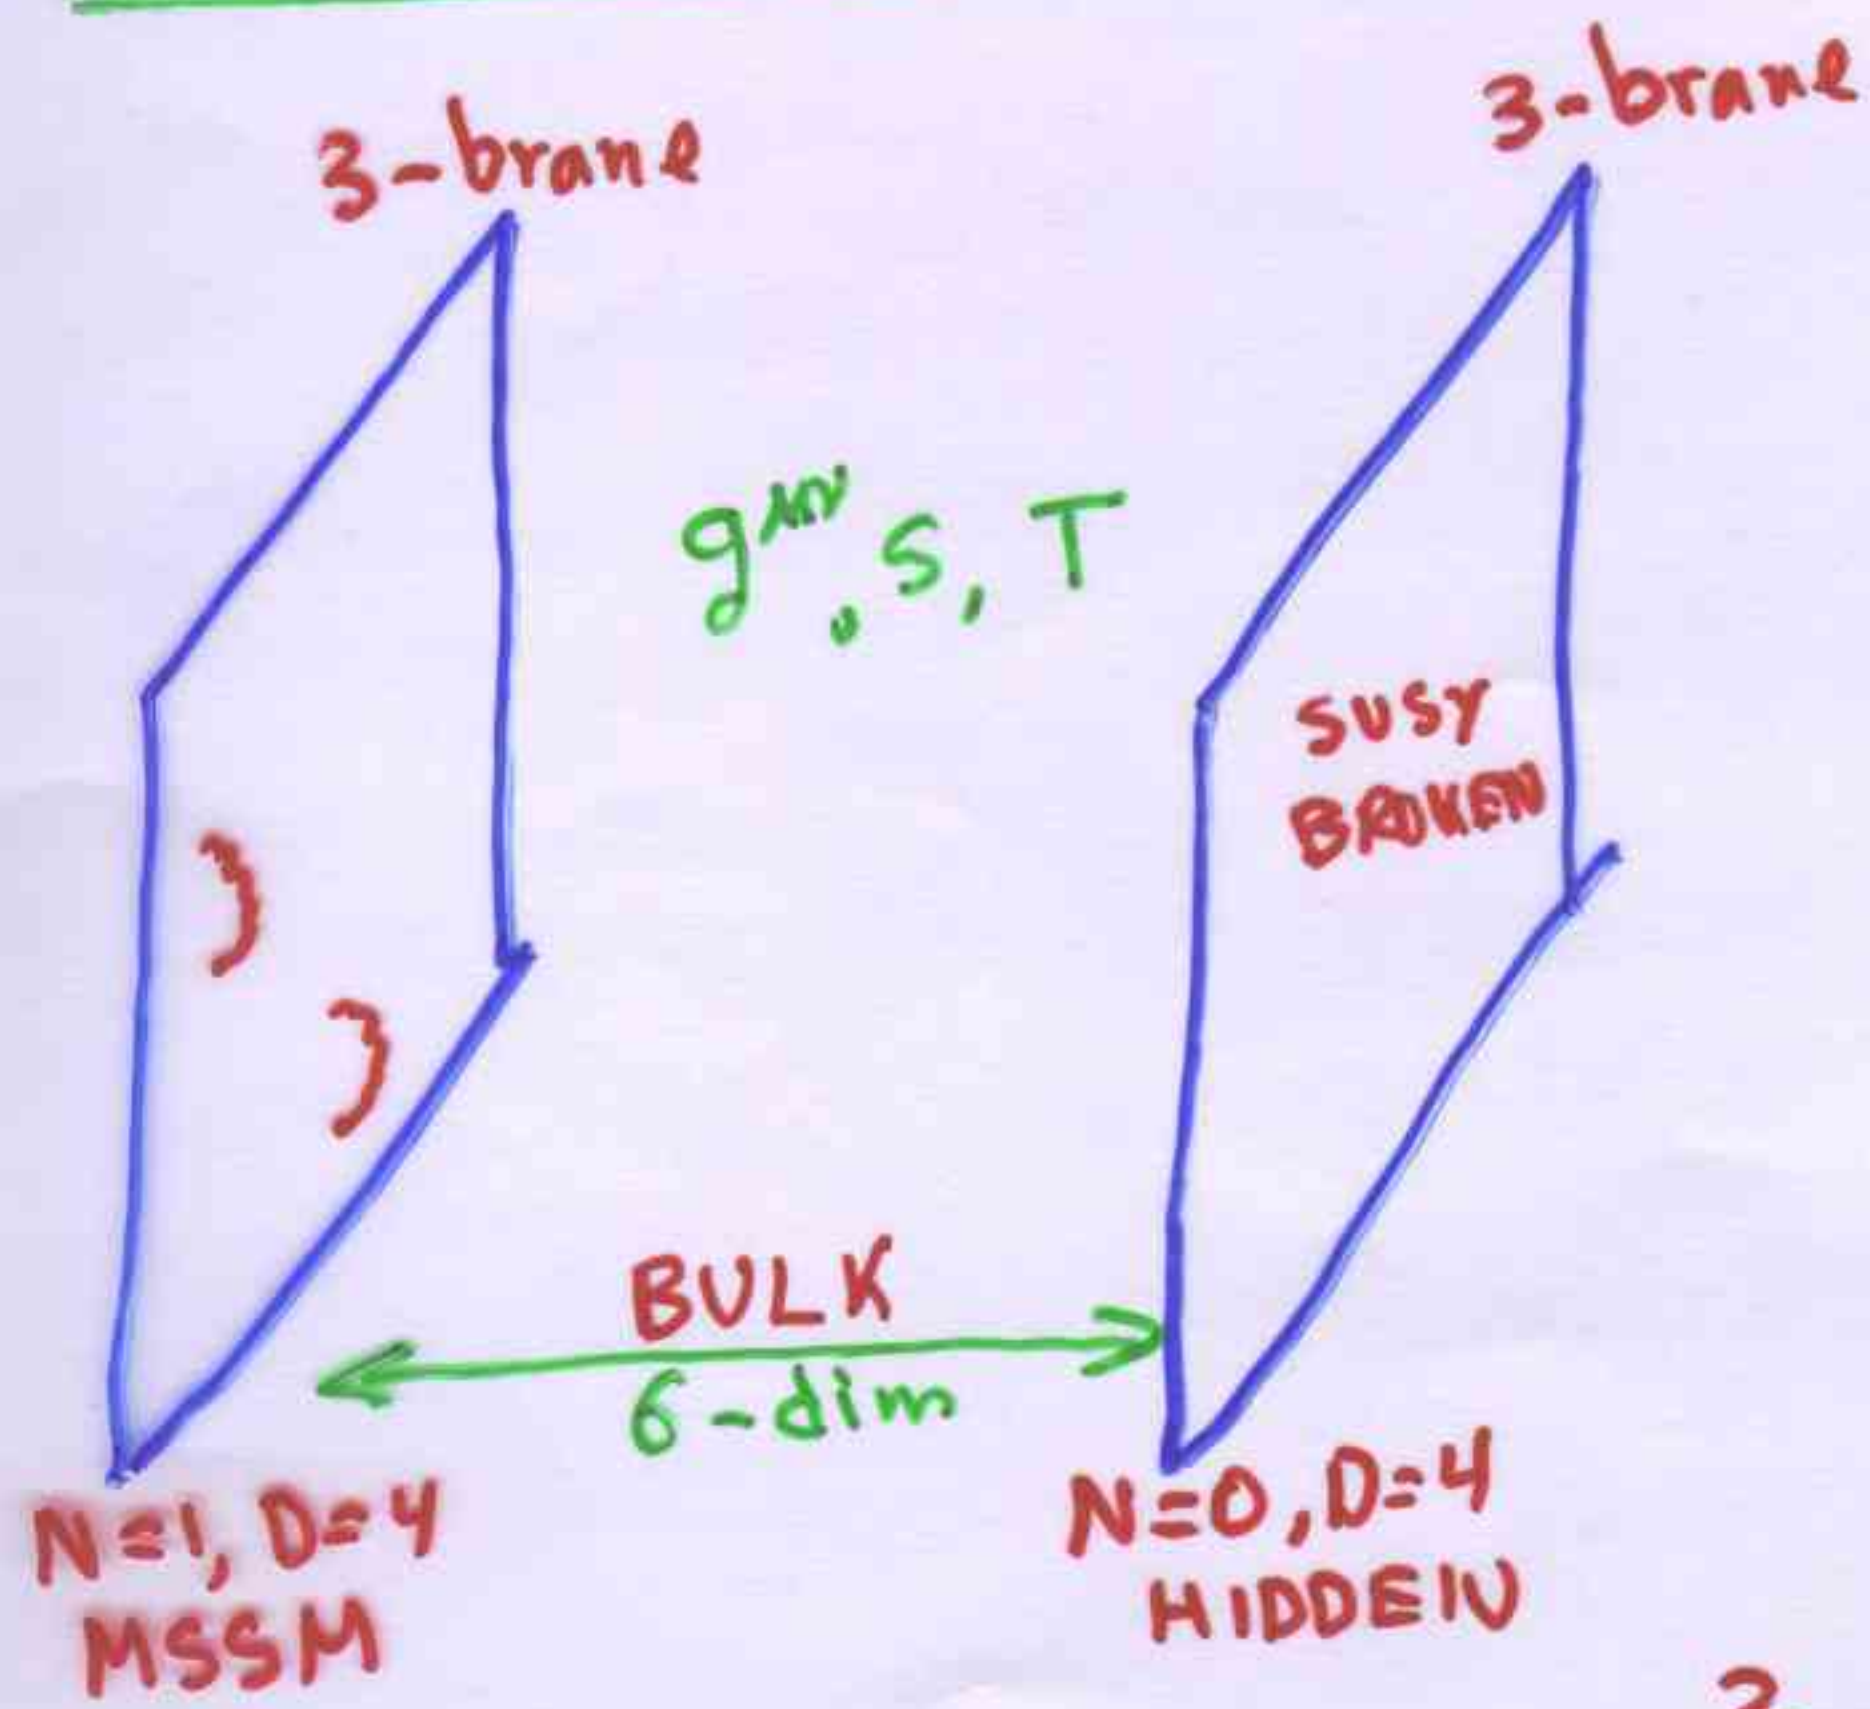 3-brane
3-brane
g^{μν}, S, T
SUSY
BROKEN
BULK
6-dim
N=1, D=4
MSSM
N=0, D=4
HIDDEN